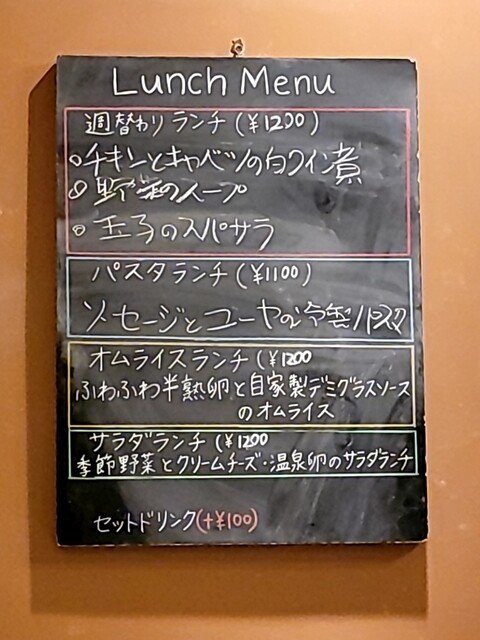 Lunch Menu
週替わりランチ (¥1200)
○チキンとキャベツの白ワイン煮
○野菜のスープ
○玉子のスパサラ
パスタランチ (¥1100)
ソーセージとゴーヤの冷製パスタ
オムライスランチ (¥1200
ふわふわ半熟卵と自家製デミグラスソース
のオムライス
サラダランチ (¥1200
季節野菜とクリームチーズ・温泉卵のサラダランチ
セットドリンク(+¥100)